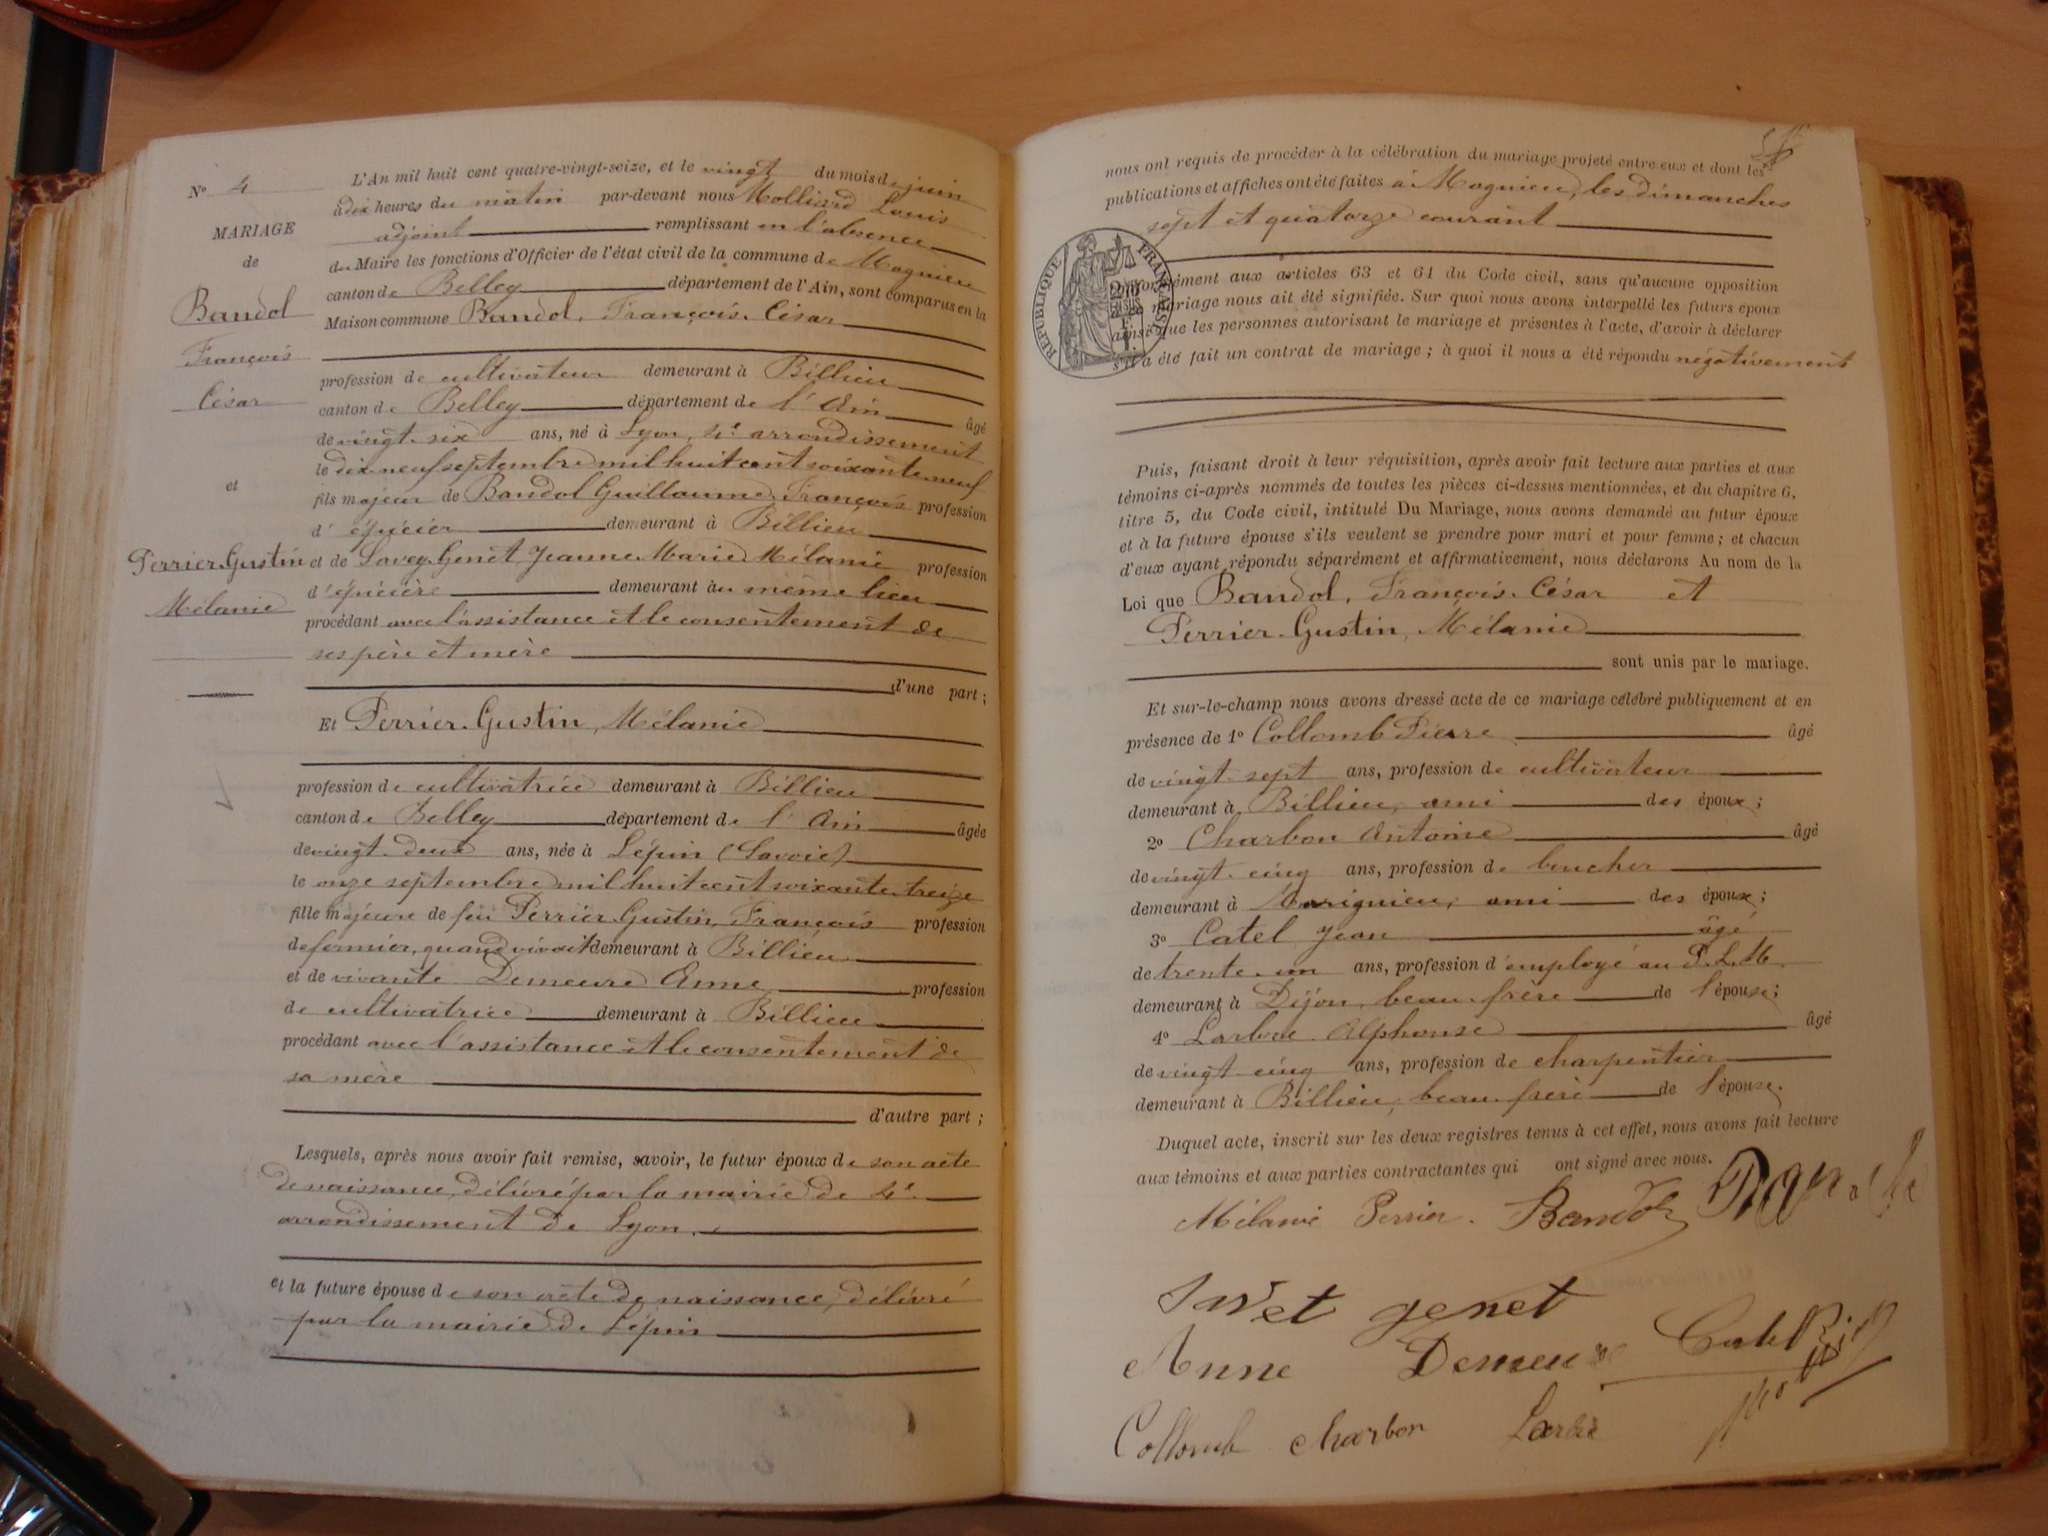 N° 4
MARIAGE
de
Bandol
François
César
et
Perrier-Gustin
Mélanie
L'An mil huit cent quatre-vingt-seize, et le vingt du mois de juin
à dix heures du matin par-devant nous Molliard Louis
adjoint remplissant en l'absence
du Maire les fonctions d'Officier de l'état civil de la commune de Magnieu
canton de Belley département de l'Ain, sont comparus en la
Maison commune Bandol, François, César
profession de cultivateur demeurant à Billieu
canton de Belley département de l'Ain âgé
de vingt-six ans, né à Lyon, 4e arrondissement
le dix-neuf septembre mil huit cent soixante neuf
fils majeur de Bandol Guillaume, François profession
d'épicier demeurant à Billieu
et de Savey-Genet Jeanne Marie Mélanie profession
d'épicière demeurant au même lieu
procédant avec l'assistance et le consentement de
ses père et mère
d'une part ;
Et Perrier-Gustin, Mélanie
profession de cultivatrice demeurant à Billieu
canton de Belley département de l'Ain âgée
de vingt-deux ans, née à Lépin (Savoie)
le onze septembre mil huit cent soixante-treize
fille majeure de feu Perrier Gustin, François profession
de fermier, quand vivait demeurant à Billieu
et de vivante Demeure Anne profession
de cultivatrice demeurant à Billieu
procédant avec l'assistance et le consentement de
sa mère
d'autre part ;
Lesquels, après nous avoir fait remise, savoir, le futur époux de son acte
de naissance, délivré par la mairie de 4e
arrondissement de Lyon.
et la future épouse de son acte de naissance, délivré
par la mairie de Lépin
nous ont requis de procéder à la célébration du mariage projeté entre eux et dont les
publications et affiches ont été faites à Magnieu, les dimanches
sept et quatorze courant
RÉPUBLIQUE FRANÇAISE
conformément aux articles 63 et 64 du Code civil, sans qu'aucune opposition
mariage nous ait été signifiée. Sur quoi nous avons interpellé les futurs époux
ainsi que les personnes autorisant le mariage et présentes à l'acte, d'avoir à déclarer
s'il a été fait un contrat de mariage ; à quoi il nous a été répondu négativement
Puis, faisant droit à leur réquisition, après avoir fait lecture aux parties et aux
témoins ci-après nommés de toutes les pièces ci-dessus mentionnées, et du chapitre 6,
titre 5, du Code civil, intitulé Du Mariage, nous avons demandé au futur époux
et à la future épouse s'ils veulent se prendre pour mari et pour femme ; et chacun
d'eux ayant répondu séparément et affirmativement, nous déclarons Au nom de la
Loi que Bandol, François, César et
Perrier-Gustin, Mélanie
sont unis par le mariage.
Et sur-le-champ nous avons dressé acte de ce mariage célébré publiquement et en
présence de 1° Collomb Pierre âgé
de vingt-sept ans, profession de cultivateur
demeurant à Billieu, ami des époux ;
2° Charbon Antoine âgé
de vingt-cinq ans, profession de boucher
demeurant à Marignieu, ami des époux ;
3° Catel Jean âgé
de trente-un ans, profession d'employé au P.L.M.
demeurant à Dijon, beau-frère de l'épouse ;
4° Alphonse âgé
de vingt-cinq ans, profession de charpentier
demeurant à Billieu, beau-frère de l'épouse.
Duquel acte, inscrit sur les deux registres tenus à cet effet, nous avons fait lecture
aux témoins et aux parties contractantes qui ont signé avec nous.
Mélanie Perrier. Bandol
Savet genet
Anne Demeure Catel
Collomb Charbon